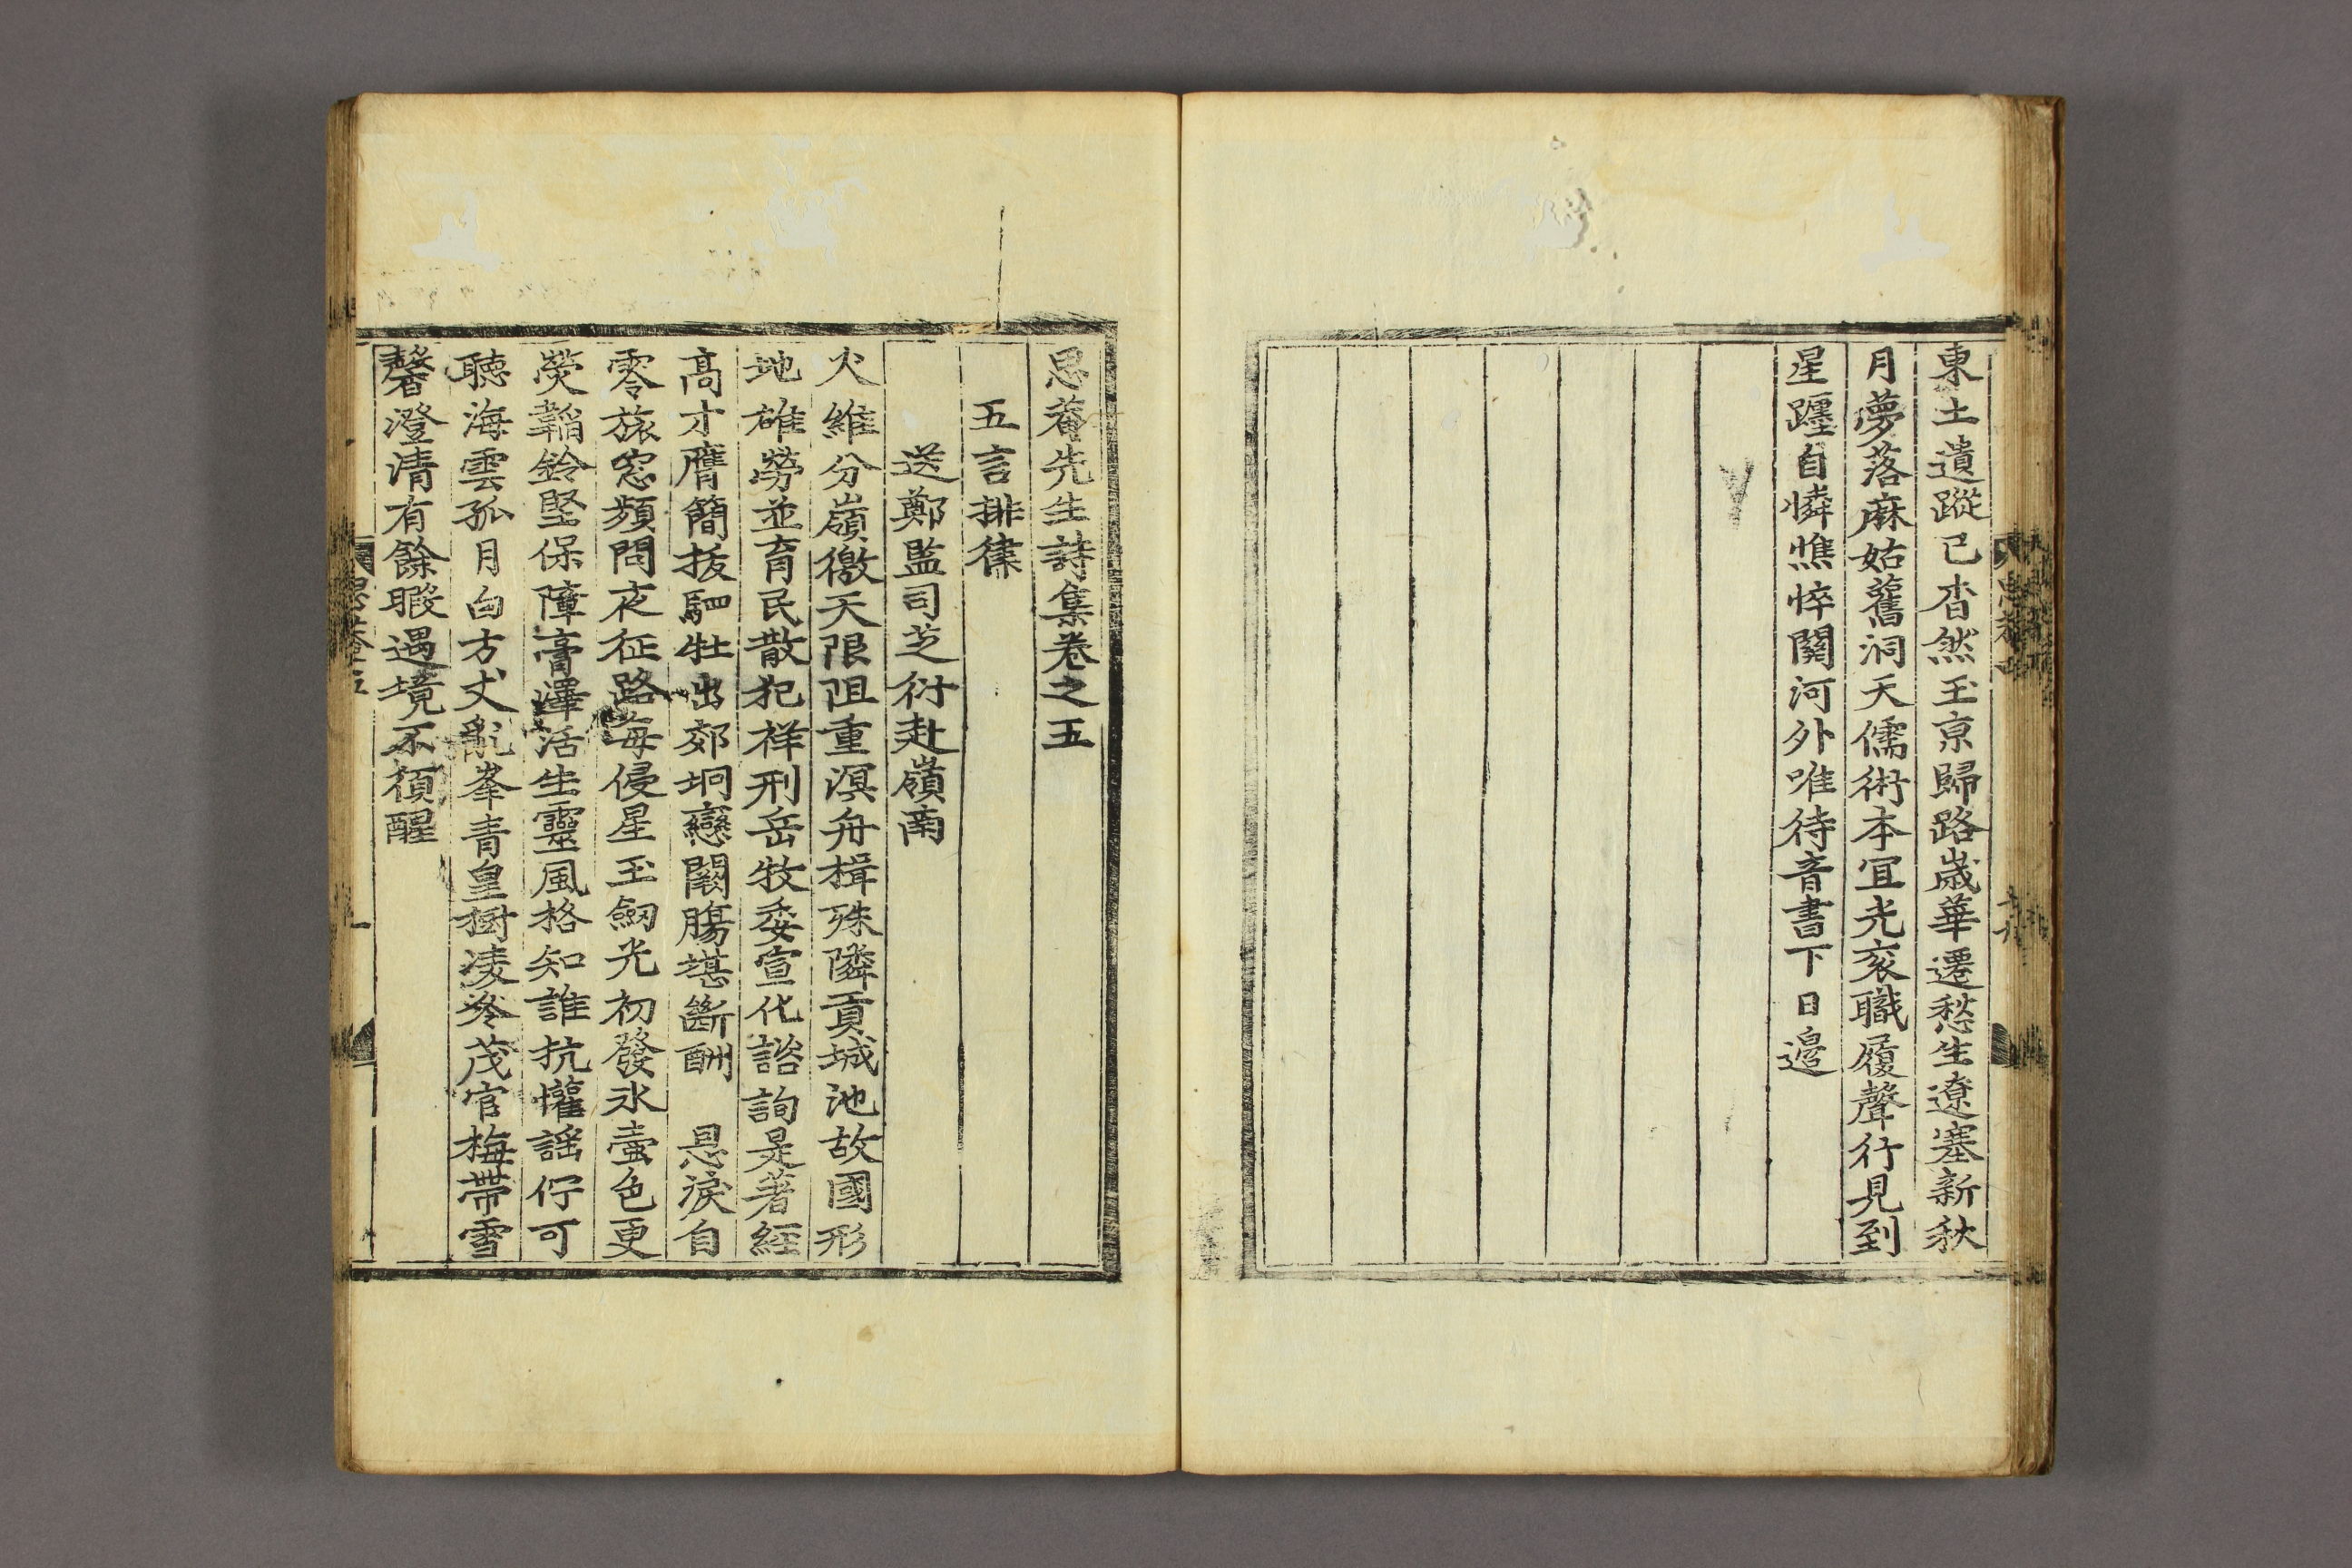 東土遺蹤已杳然玉京歸路歲華遷愁生遼塞新秋
月夢落麻姑舊洞天儒術本宜光衮職履聲行見到
星躔自憐憔悴關河外唯待音書下日邊
思菴先生詩集卷之五
五言排律
送鄭監司芝衍赴嶺南
火維分嶺徼天限阻重溟舟楫殊隣貢城池故國形
地雄勞並育民散犯祥刑岳牧委宣化諮詢是著經
高才膺簡拔駟牡出郊坰戀闕腸堪斷酬 恩淚自
零旅窓頻問夜征路每侵星玉劒光初發氷壺色更
熒韜鈴堅保障膏澤活生靈風格知誰抗懽謠佇可
聽海雲孤月白方丈亂峯青皇樹凌冬茂官梅帶雪
馨澄清有餘暇遇境不須醒